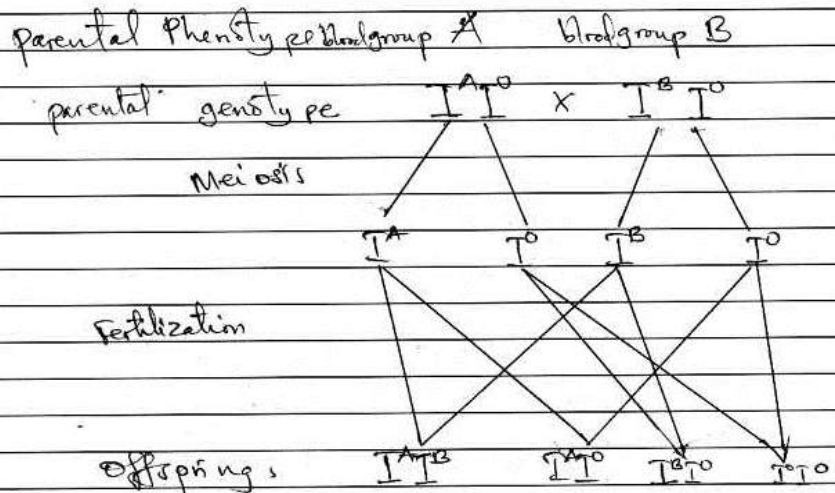 Parental Phenotype bloodgroup A bloodgroup B
parental genotype I^A I^O x I^B I^O
Meiosis
I^A I^O I^B I^O
Fertilization
Offsprings I^A I^B I^A I^O I^B I^O I^O I^O